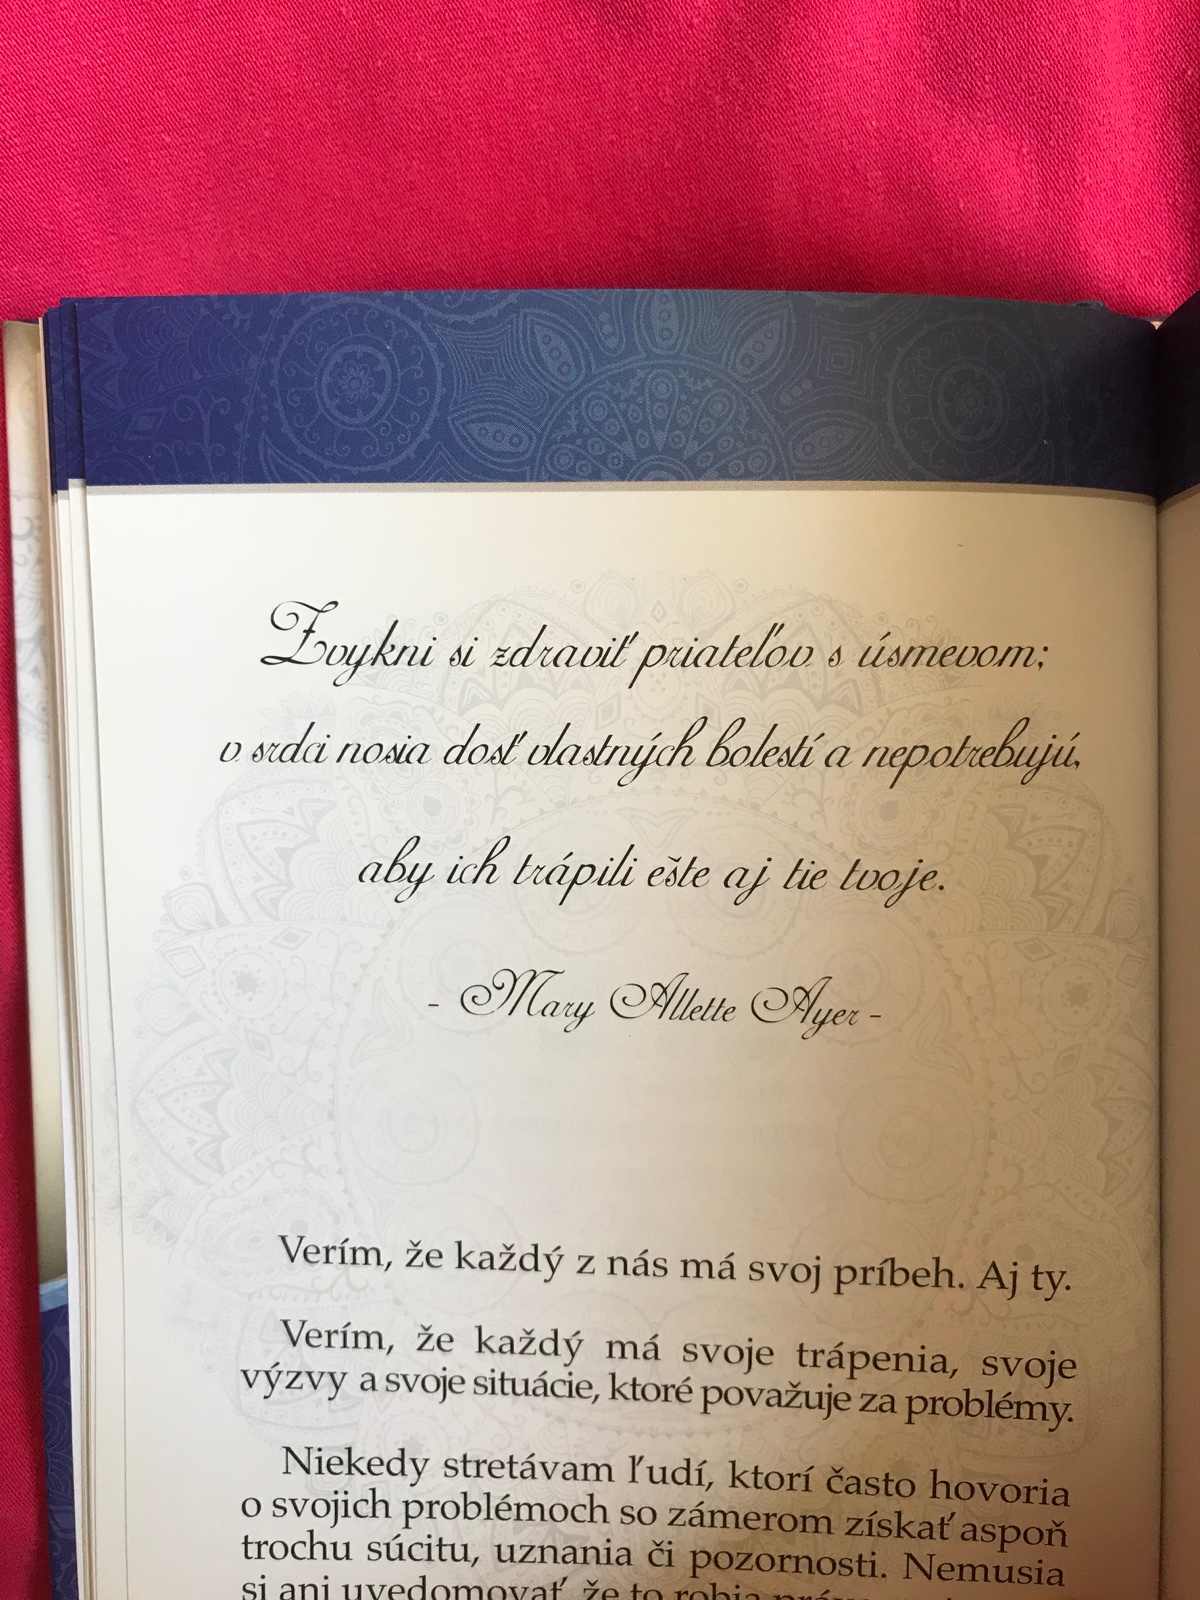 Zvykni si zdraviť priateľov s úsmevom;
v srdci nosia dosť vlastných bolestí a nepotrebujú,
aby ich trápili ešte aj tie tvoje.
- Mary Allette Ayer -
Verím, že každý z nás má svoj príbeh. Aj ty.
Verím, že každý má svoje trápenia, svoje
výzvy a svoje situácie, ktoré považuje za problémy.
Niekedy stretávam ľudí, ktorí často hovoria
o svojich problémoch so zámerom získať aspoň
trochu súcitu, uznania či pozornosti. Nemusia
si ani uvedomovať, že to robia